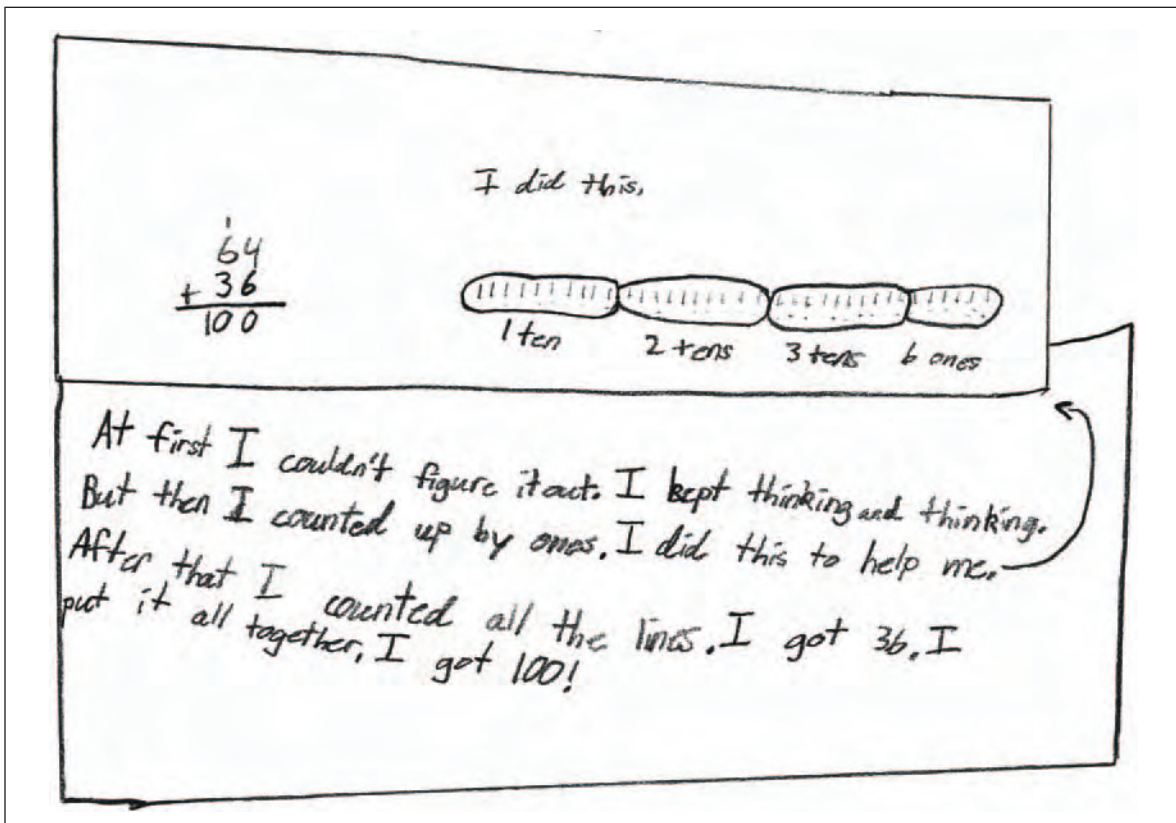 I did this.
1
64
+ 36
100
1 ten 2 tens 3 tens 6 ones
At first I couldn't figure it out. I kept thinking and thinking.
But then I counted up by ones. I did this to help me.
After that I counted all the lines. I got 36. I
put it all together. I got 100!